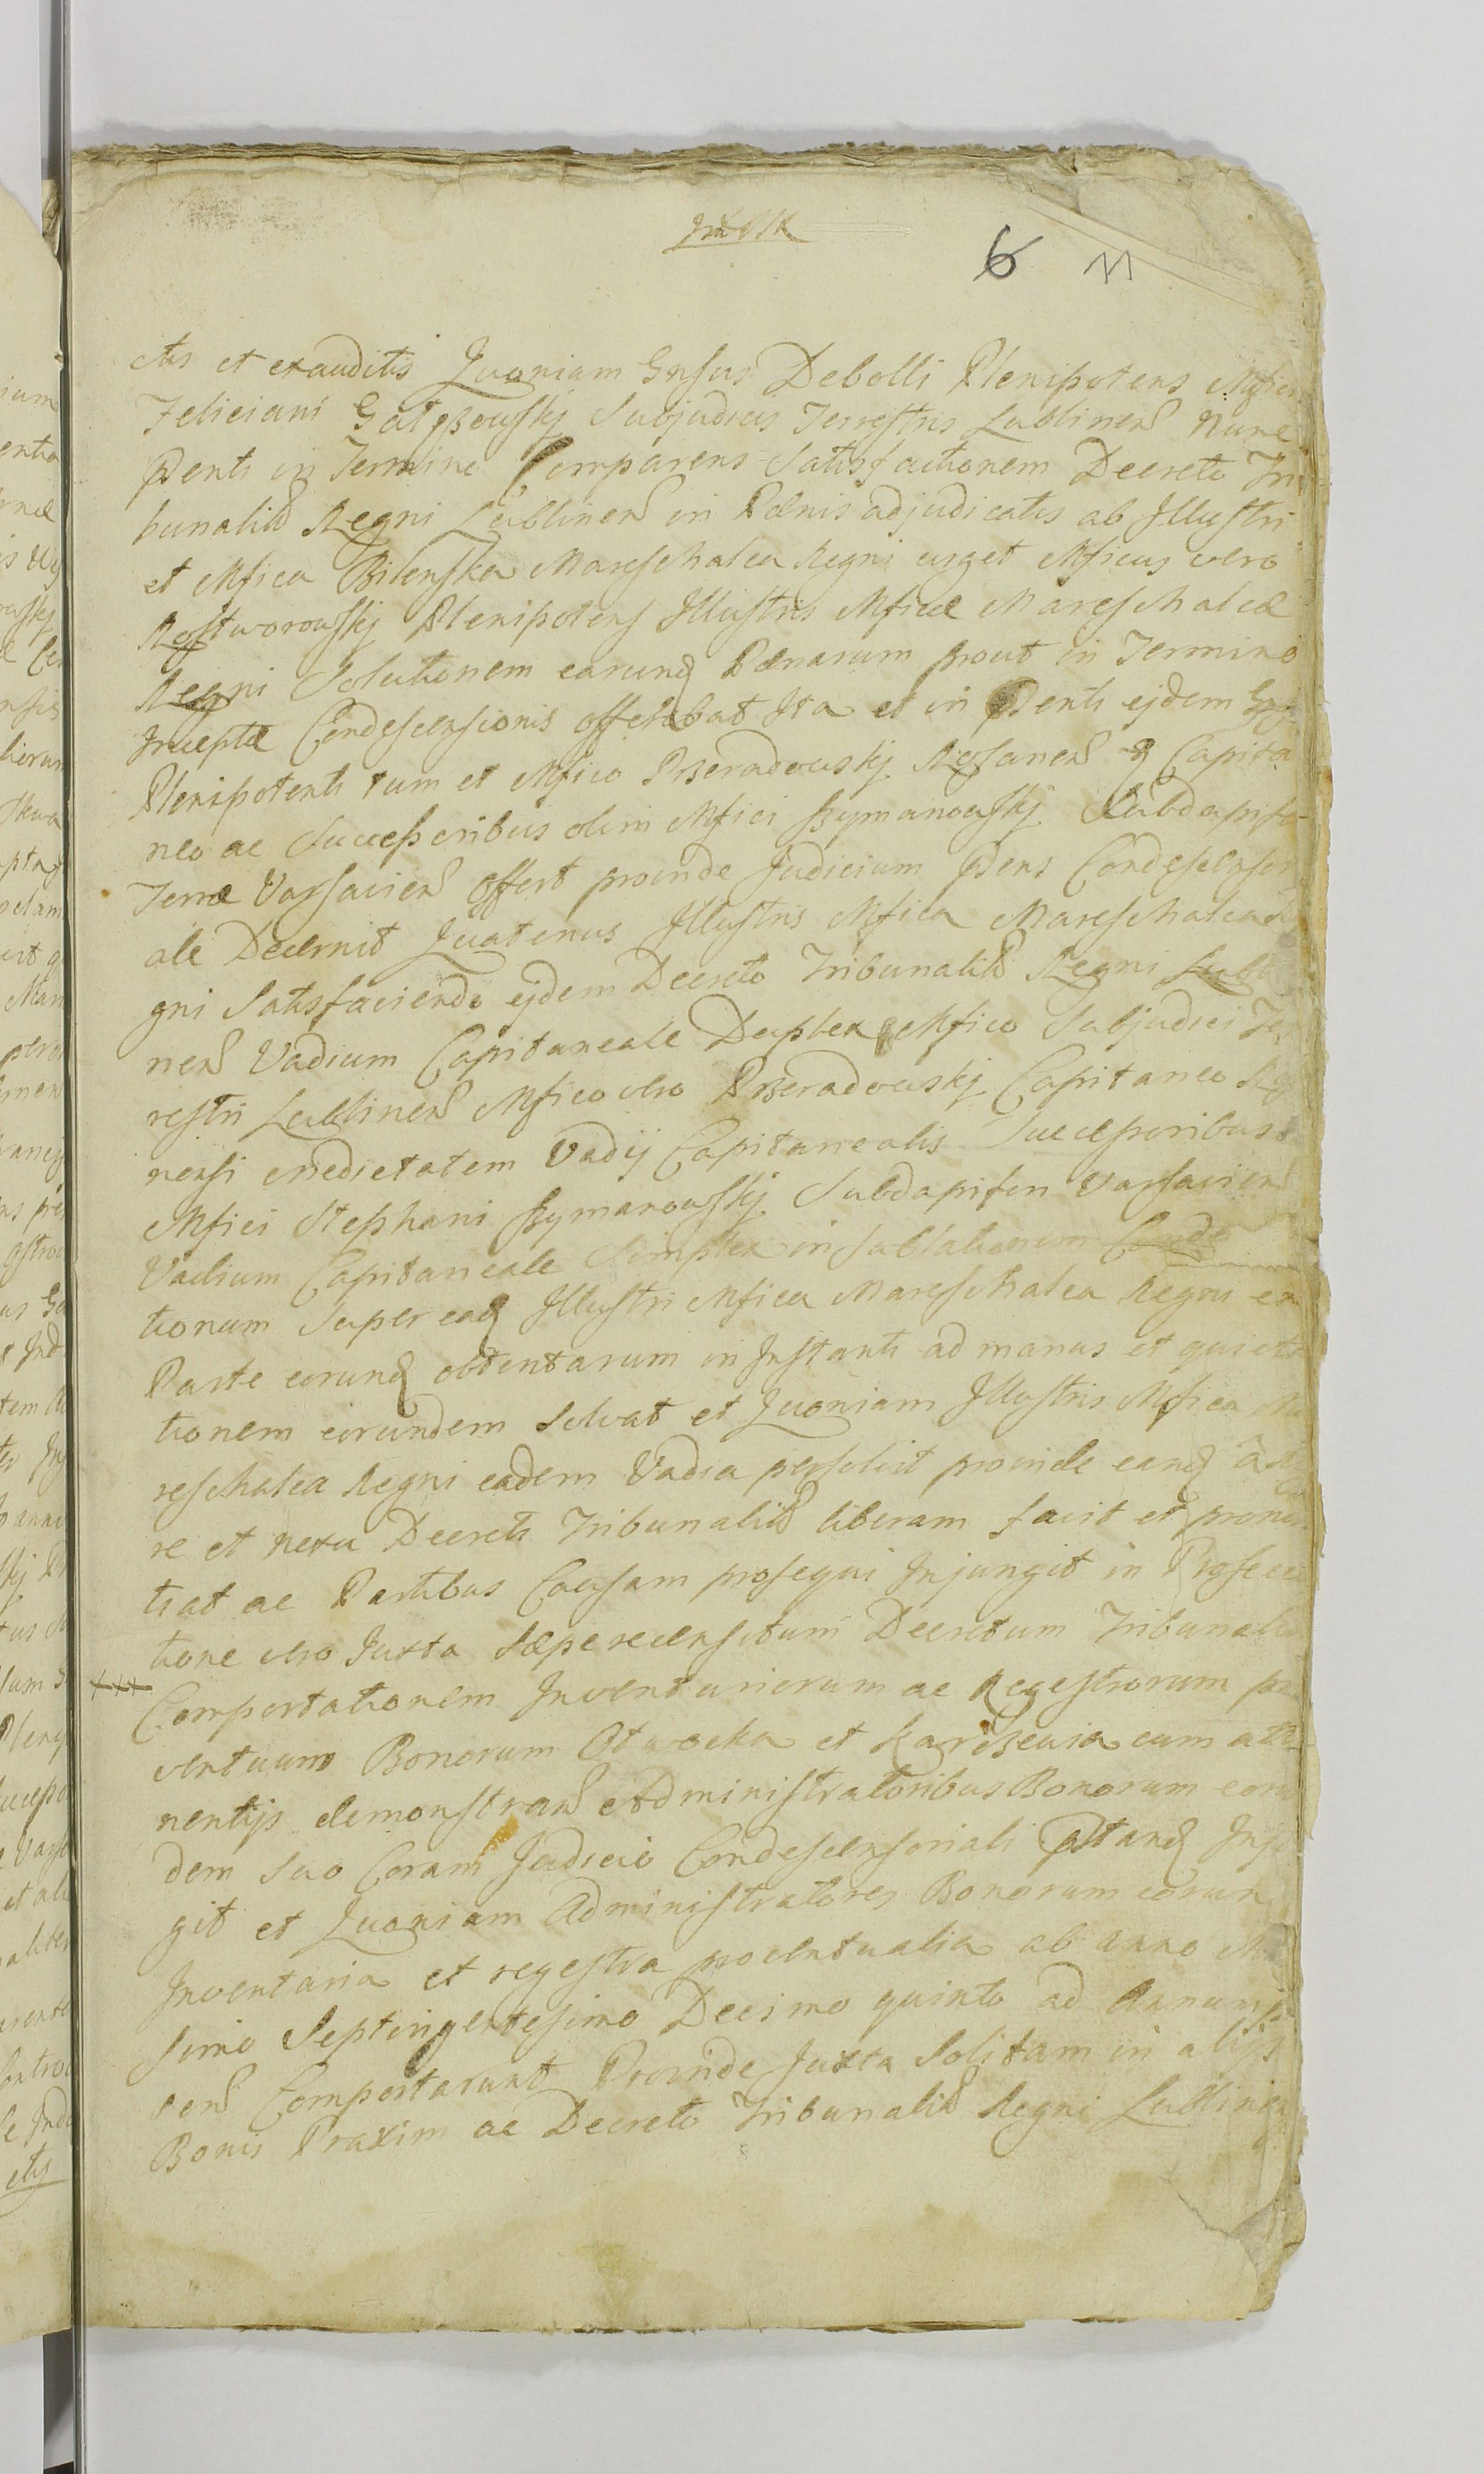 6 11
ctis et exauditis Quoniam Gnsus Debolli Plenipotens Mfici
Feliciani Gałęzowskj Subjudicis Terrestris Lublinen Nunc
Pñti in Termino Comparens Satisfactionem Decreto Tri
bunalis Regni Lublinen in Pænis adjudicatis ab Illustri
et Mfica Bilenska Mareschalca Regni urget Mficus vero
Rostworowskj Plenipotens Illustris Mficæ Mareschalcæ
Regni Solutionem earund Pænarum prout in Termino
Inceptæ Condescensionis offerebat Ita et in Pñti ejdem
Plenipotenti tum et Mfico Przeradowskj Rosanen Capita
neo ac Successoribus olim Mfici Szymanowskj Subdapife
Terræ Varsavien offert proinde Judicium Pñs Condescensori
ale Decernit Quatenus Illustris Mfica Mareschalca Re
gni Satisfaciendo ejdem Decreto Tribunalis Regni Lubli
nen Vadium Capitaneale Duplex Mfico Subjudici Ter
restri Lublinen Mfico vero Przeradowskj Capitaneo Roza
nensi medietatem Vadij Capitanealis Successoribus
Mfici Stephani Szymanowskj Subdapiferi Varsavien
Vadium Capitaneale Simplex in Sublationem Conde
tionum Super ead Illustri Mfica Mareschalca Regni ex
Parte eorund obtentarum in Instanti ad manus et quieta
tionem eorundem Solvat et Quoniam Illustris Mfica Ma
reschalca Regni eadem Vadia persolvit proinde eand â
re et nexu Decreti Tribunalis liberam facit et pronun
tiat ac Partibus Causam prosequi Injungit in Prosecu
tione vero Juxta Sæperecensitum Decretum Tribunalis
Comportationem Inventariorum ac Regestrorum pro
ventuum Bonorum Otwocka et Karczewia cum atti
nentijs demonstran Administratoribus Bonorum eorun
dem Suo Coram Judicio Condescensoriali pstand Injun
git et Quoniam Administratores Bonorum eorun
Inventaria et regestra proventualia ab anno Mil
simo Septingentesimo Decimo quinto ad Annum p
sen Comportarunt Proinde Juxta Solitam in alijs
Bonis Praxim ac Decreto Tribunalis Regni Lublinen